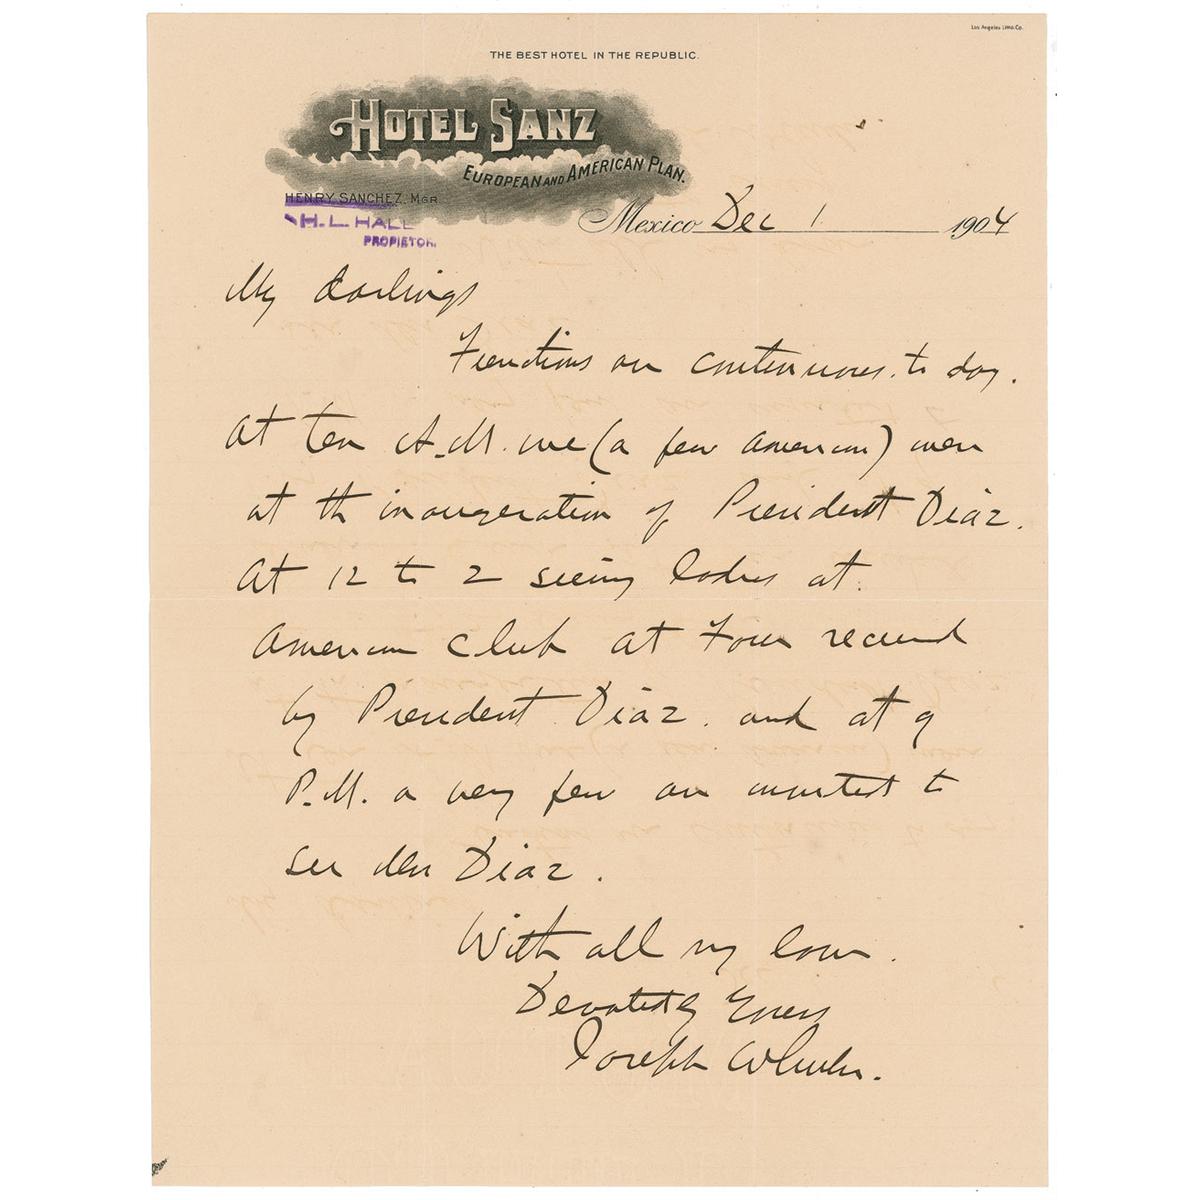 Los Angeles Litho. Co.
THE BEST HOTEL IN THE REPUBLIC.
HOTEL SANZ
EUROPEAN AND AMERICAN PLAN.
HENRY SANCHEZ, MGR
H. L. HALL
PROPIETOR.
Mexico Dec 1 1904
My darlings
Functions are continuous to day.
At ten A.M. we (a few American) were
at th inaugeration of President Diaz.
At 12 to 2 seeing ladies at
American Club at Four received
by President Diaz. and at 9
P.M. a very few are invited to
see Diaz.
With all my love.
Devotedly Yours
Joseph Wheeler.